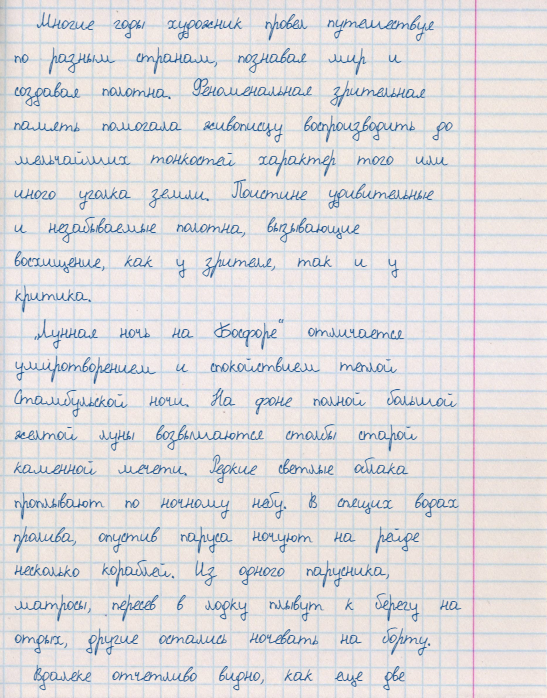 Многие годы художник провел путешествуя
по разным странам, познавая мир и
создавая полотна. Феноменальная зрительная
память помогала живописцу воспроизводить до
мельчайших тонкостей характер того или
иного уголка земли. Поистине удивительные
и незабываемые полотна, вызывающие
восхищение, как у зрителя, так и у
критика.
„Лунная ночь на Босфоре“ отличается
умиротворением и спокойствием теплой
Стамбульской ночи. На фоне полной большой
желтой луны возвышаются столбы старой
каменной мечети. Редкие светлые облака
проплывают по ночному небу. В спящих водах
пролива, опустив паруса ночуют на рейде
несколько кораблей. Из одного парусника,
матросы, пересев в лодку плывут к берегу на
отдых, другие остались ночевать на борту.
Вдалеке отчетливо видно, как еще две